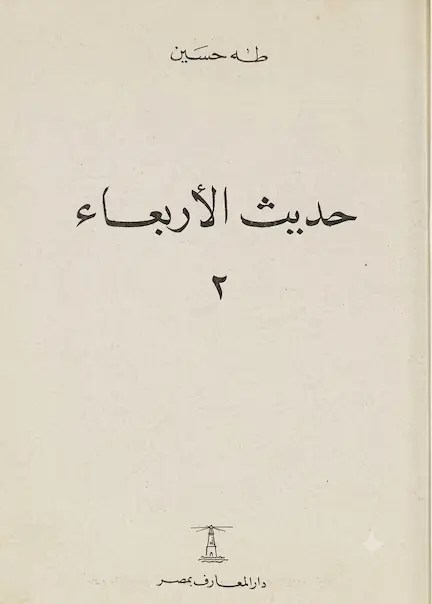 طه حسين
حديث الأربعاء
٢
دار المعارف بمصر